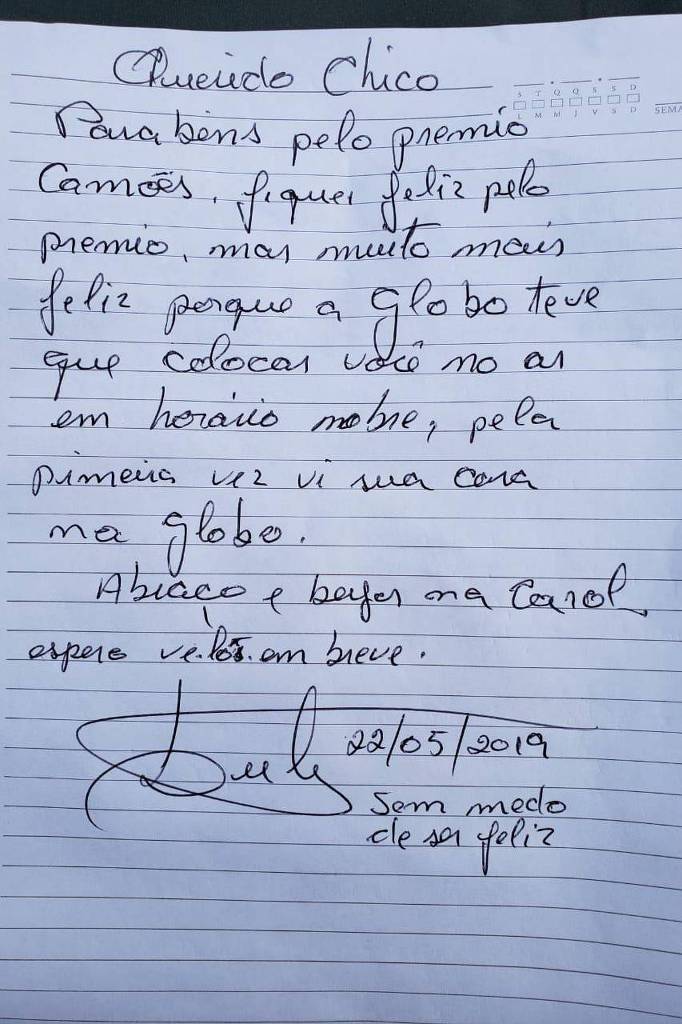 Querido Chico
S T Q Q S S D
L M M J V S D
SEMA
Parabéns pelo premio
Camões, fiquei feliz pelo
premio, mas muito mais
feliz porque a Globo teve
que colocar você no ar
em horário nobre, pela
primeira vez vi sua cara
na Globo.
Abraço e beijos na Carol,
espero ve-los em breve.
Lula 22/05/2019
Sem medo
de ser feliz